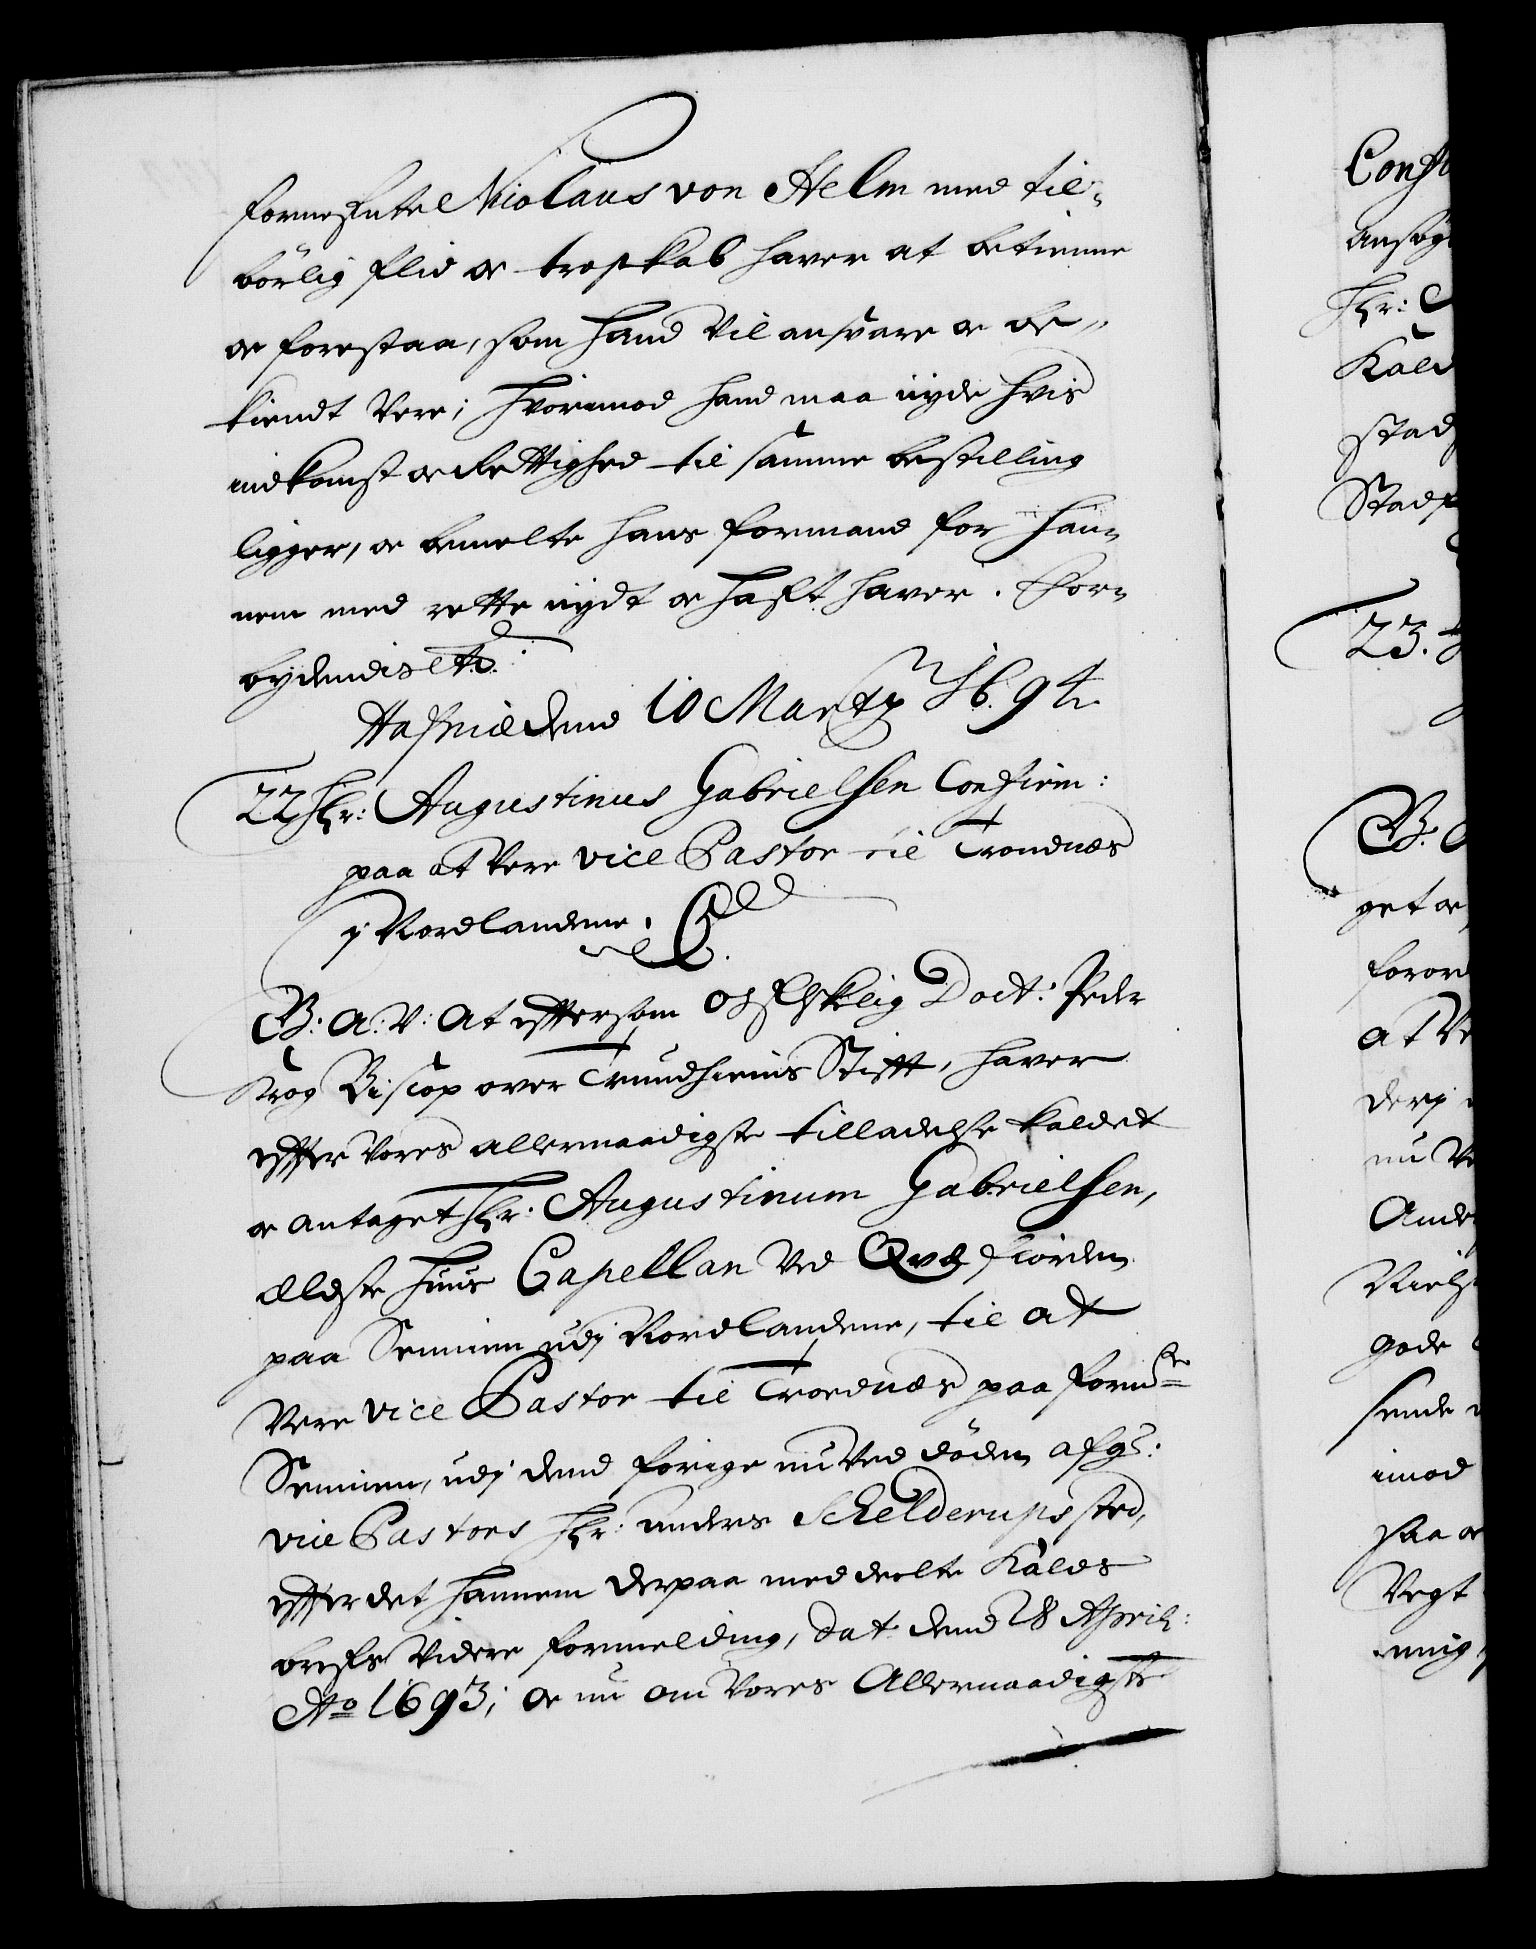 fornefnte Niolaus von Helm med til-
börlig flid oc troskab haver at betienne
oc forestaa, som hand vil ansvare oc be-
kiendt være; hvorimod hand maa nyde hvis
indkomst oc Rettighed til samme bestilling
ligger, oc bemelte hans formand for han-
nem med rette nydt oc hafft haver. For-
bydendis etc:
Hafniæ dend 10 Martij 1694.
22 Hr: Augustinus Gabrielsen Confirm:
paa at være vice Pastor til Trondnæs
j Nordlandene. C
G: A: V: At effter som Os Elskelig Doct: Peder
Krog Biscop over Trundhiems Stifft, haver
effter Vores allernaadigste tilladelse kaldet
oc antaget Hr: Augustinum Gabrielsen,
ældste huus Capellan ved Qvæfiorden
paa Sennien udj Nordlandene, til at
være vice Pastor til Troednæs paa fornte
Sennien, udj dend forige nu ved döden afg:
vice Pastors Hr: Anders Schelderups sted,
effter det hannem derpaa meddeelte Kalds
brefs videre formelding, dat: dend 28 April:
Ao 1693; oc nu om Vores Allernaadigste
Conf
ansög
Hr:
Kald
stad
Stadf
23.
G.
get oc
foror
at Ve
derj
nu Ve
Ande
Niels
gode
sende
imod
saa oc
Vegt